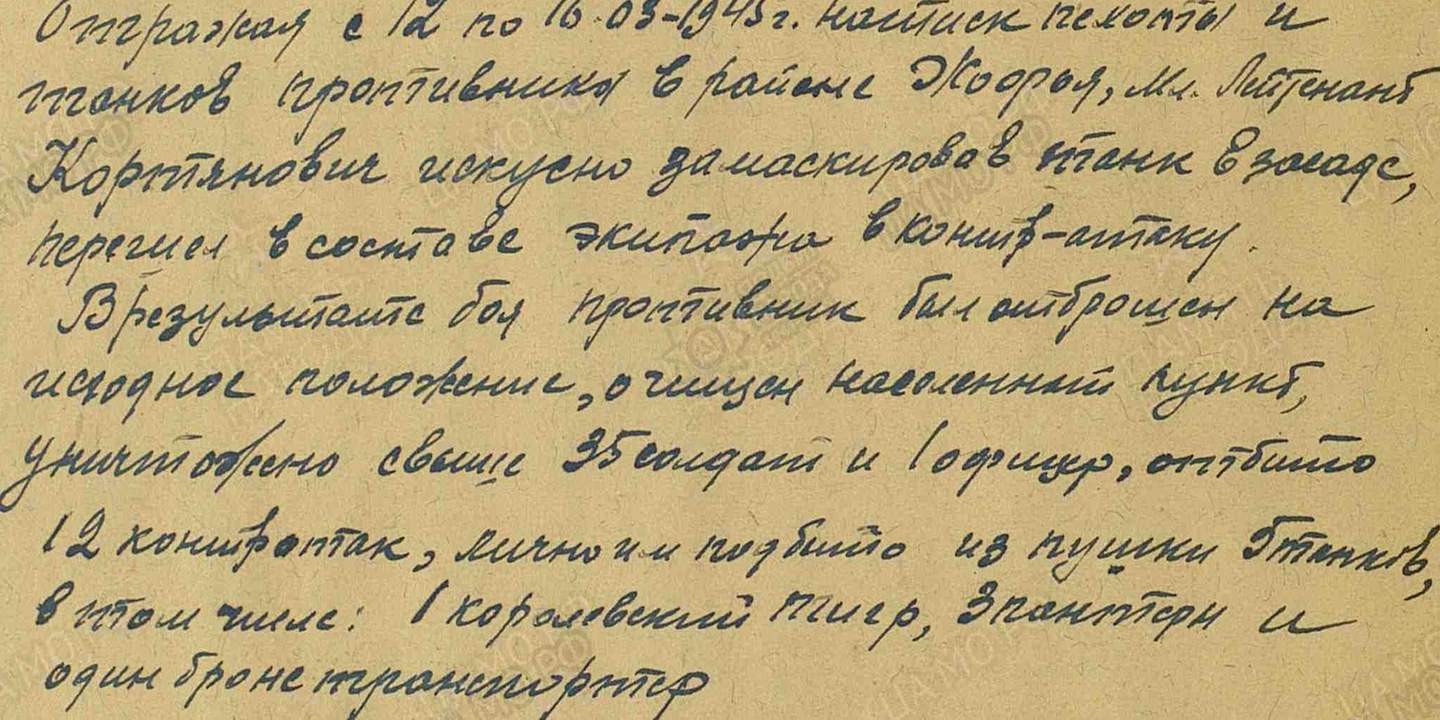 Отражая с 12 по 16.03-1945г. натиск пехоты и
танков противника в районе Жофья, мл. Лейтенант
Кортянович искусно замаскировав танк в засаде,
перешел в составе экипажа в контр-атаку.
В результате боя противник был отброшен на
исходное положение, очищен населенный пункт,
уничтожено свыше 35 солдат и 1 офицер, отбито
12 контратак, лично им подбито из пушки 5 танков,
в том числе: 1 королевский тигр, 3 пантеры и
один бронетранспортер